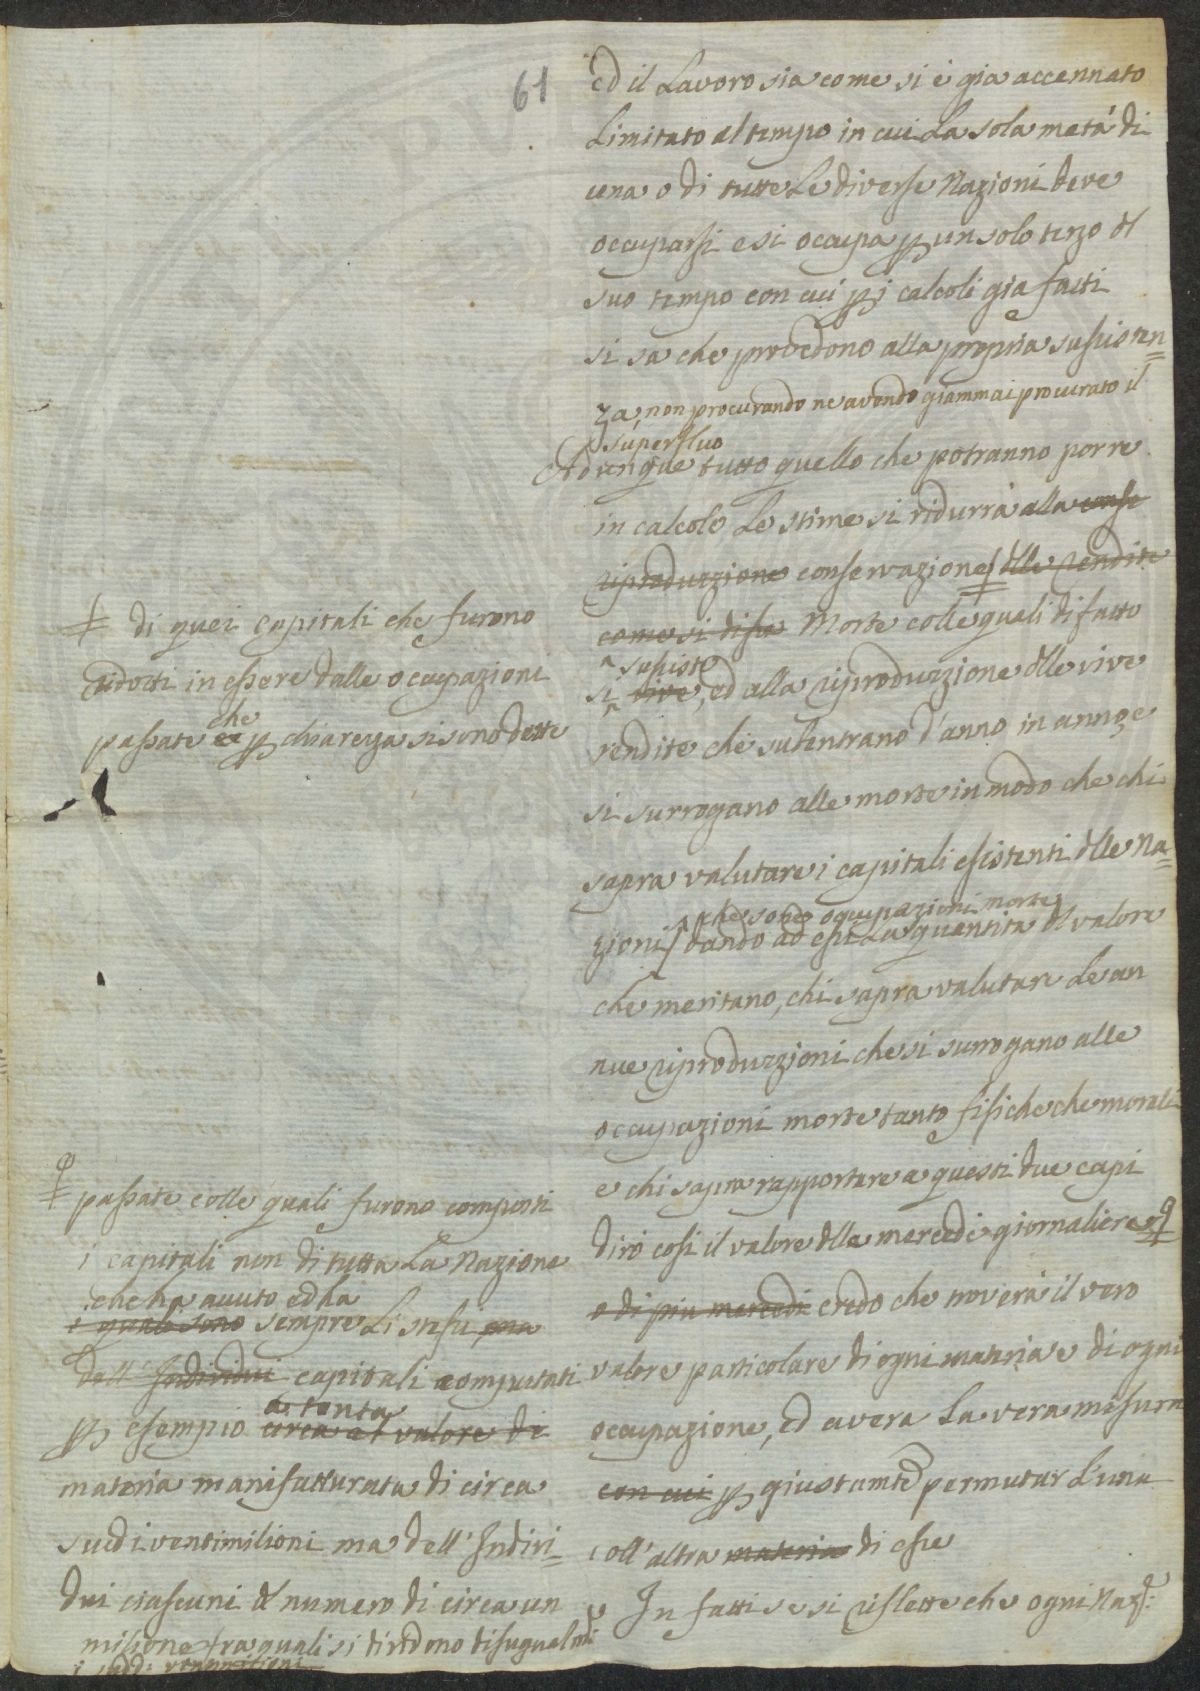 61
ed il Lavoro sia come si è gia accennato
Limitato al tempo in cui La sola metá di
una o di tutte Le diverse Nazioni deve
occuparsi e si occupa p un solo terzo dl
suo tempo con cui pi calcoli gia fatti
si sa che provedono alla propria sussisten=
za, non procurando ne avendo giammai procurato il
superfluo
Adunque tutto quello che potranno porre
in calcolo Le stime si ridurrà alla conse
riproduzzione conservazione dlle rendite
come si disse Morte colle quali di fatto
sussiste
si vive, ed alla riproduzzione dlle vive
rendite che subentrano d'anno in anno, e
si surrogano alle morte in modo che chi
sapra valutare i capitali esistenti dlle Na=
che sono occupazioni morte
zioni dando ad essi La quantita dl valore
che meritano, chi sapra valutare Le an
nue riproduzzioni che si surrogano alle
occupazioni morte tanto fisiche che morali
e chi sapra rapportare a questi due capi
diró cosi il valore dlla mercede giornaliera
e di piu mercedi credo che troverá il vero
valore particolare di ogni materia e di ogni
occupazione, ed avera La vera misura
con cui p giustamte permutar L'una
coll'altra materia di esse
In fatti se si riflette che ogni Naz:
di quei capitali che furono
ridotti in essere dalle occupazioni
che
passate e p chiarezza si sono dette
passate colle quali furono composti
i capitali non di tutta La Nazione
che há avuto ed ha
e quali sono sempre Li stessi
dell' Individui capitali computati
a tanta
p esempio circa al valore di
materia manifatturata di circa
scudi ventimilioni ma dell' Indivi=
dui ciascuni dl numero di circa un
milione tra quali si dividono disugualmte
i scudi ventimilioni